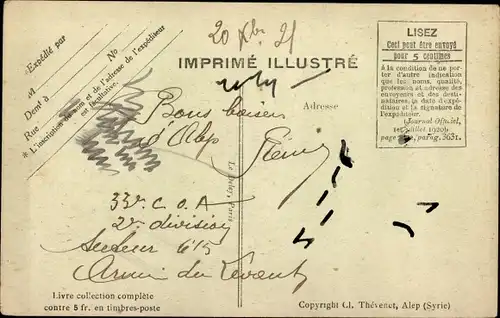 Expédié par
M
Demt à No
Rue
* L'inscription du nom et de l'adresse de l'expéditeur
est facultative.
20 Xbr 21
IMPRIMÉ ILLUSTRÉ
Adresse
LISEZ
Ceci peut être envoyé
pour 5 centimes
A la condition de ne por-
ter d'autre indication
que les noms, qualité,
profession et adresse des
envoyeurs et des desti-
nataires, la date d'expé-
dition et la signature de
l'expéditeur.
(Journal Officiel,
juillet 1920,
parag. 3631.
Bons baisers
d'Alep
33e C. O. A
2e division
Secteur 615
Armée du Levant
Le Deley, Paris
Livre collection complète
contre 5 fr. en timbres-poste
Copyright Cl. Thévenet, Alep (Syrie)